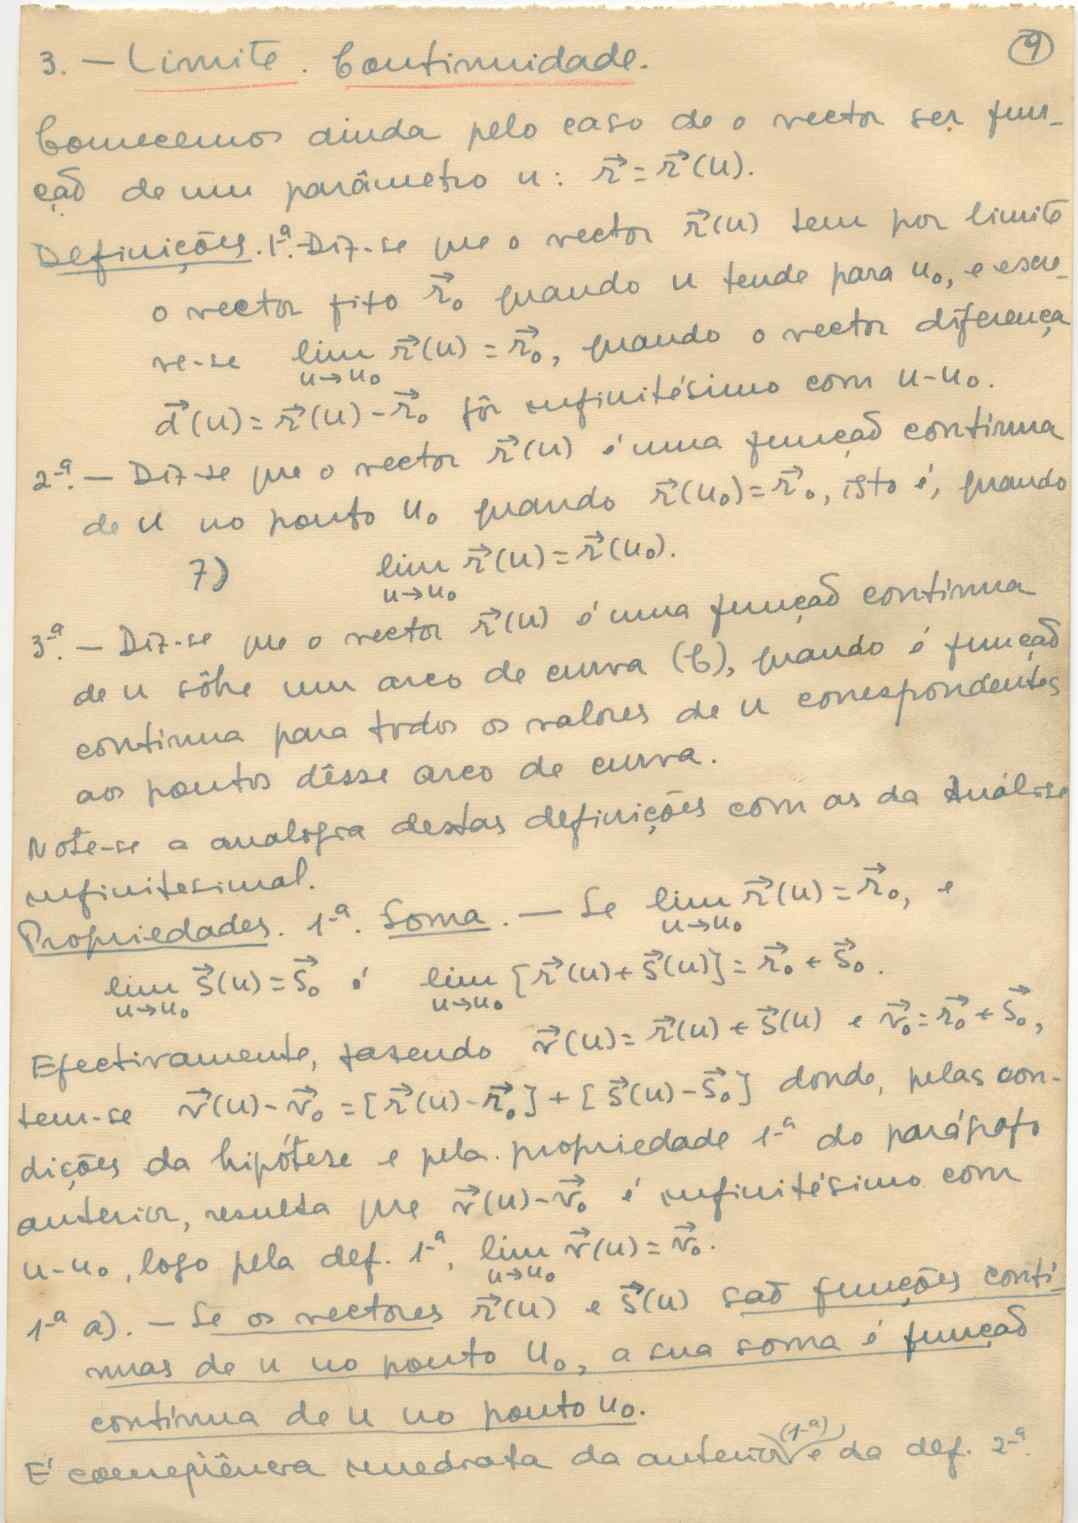 9
3. – Limite. Continuidade.
Comecemos ainda pelo caso de o vector ser fun-
ção de um parâmetro u: r⃗ = r⃗(u).
Definições. 1ª. – Diz-se que o vector r⃗(u) tem por limite
o vector fixo r⃗₀ quando u tende para u₀, e escre-
ve-se lim r⃗(u) = r⃗₀, quando o vector diferença
u→u₀
d⃗(u) = r⃗(u) – r⃗₀ fôr infinitésimo com u-u₀.
2ª. – Diz-se que o vector r⃗(u) é uma função contínua
de u no ponto u₀ quando r⃗(u₀) = r⃗₀, isto é, quando
7) lim r⃗(u) = r⃗(u₀).
u→u₀
3ª. – Diz-se que o vector r⃗(u) é uma função contínua
de u sôbre um arco de curva (C), quando é função
contínua para todos os valores de u correspondentes
aos pontos dêsse arco de curva.
Note-se a analogia destas definições com as da Análise
infinitesimal.
Propriedades. 1ª. Soma. – Se lim r⃗(u) = r⃗₀, e
u→u₀
lim s⃗(u) = s⃗₀ é lim [r⃗(u) + s⃗(u)] = r⃗₀ + s⃗₀.
u→u₀ u→u₀
Efectivamente, fazendo v⃗(u) = r⃗(u) + s⃗(u) e v⃗₀ = r⃗₀ + s⃗₀,
tem-se v⃗(u) – v⃗₀ = [r⃗(u) – r⃗₀] + [s⃗(u) – s⃗₀] donde, pelas con-
dições da hipótese e pela propriedade 1ª do parágrafo
anterior, resulta que v⃗(u) – v⃗₀ é infinitésimo com
u-u₀, logo pela def. 1ª, lim v⃗(u) = v⃗₀.
u→u₀
1ª a). – Se os vectores r⃗(u) e s⃗(u) são funções contí-
nuas de u no ponto u₀, a sua soma é função
contínua de u no ponto u₀.
É conseqüência imediata da anterior (1ª) e da def. 2ª.